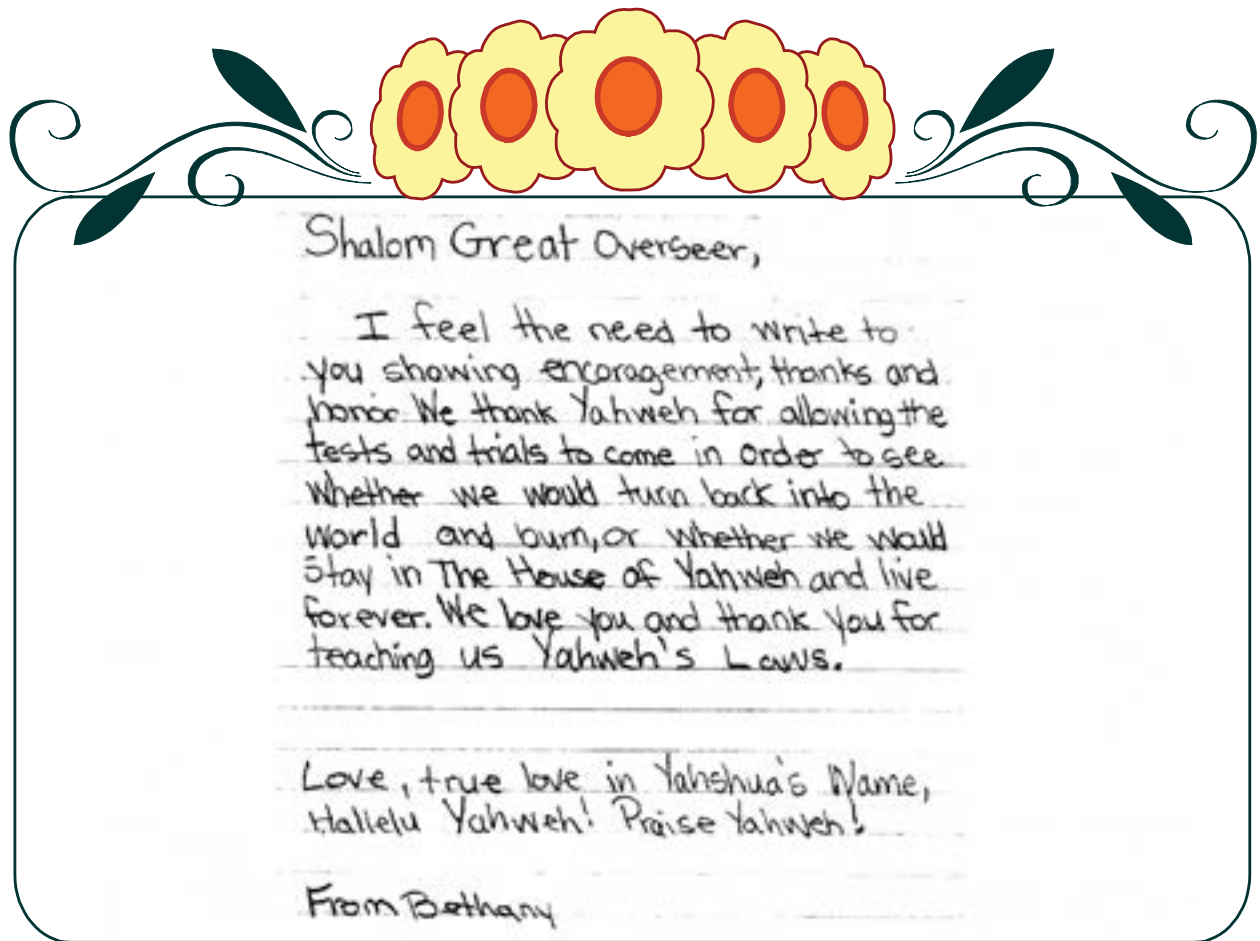 Shalom Great Overseer,
I feel the need to write to
you showing encoragement, thanks and
honor. We thank Yahweh for allowing the
tests and trials to come in order to see
whether we would turn back into the
world and burn, or whether we would
stay in The House of Yahweh and live
forever. We love you and thank you for
teaching us Yahweh's Laws.
Love, true love in Yahshua's Name,
Hallelu Yahweh! Praise Yahweh!
From Bethany